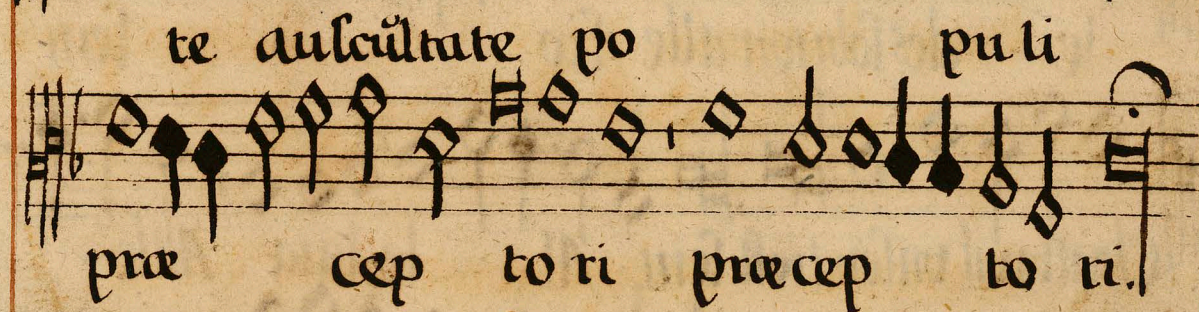 te auſcůltate po puli
præ cep to ri præcep to ri.